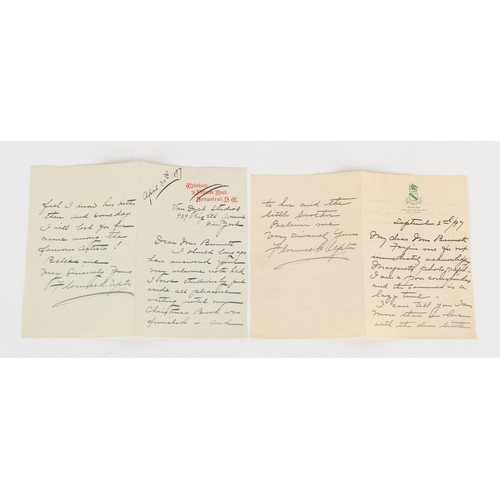 feel I know his artist
then and someday
I will look for your
name among the
famous artists!
Believe me
Very Sincerely Yours
Florence K. Upton
April 30th 97
Hampstead. N.W.
Van Dyck Studios
939 Eighth Avenue
New York
Dear Mrs Burnett
I should long ago
have answered your
very welcome note but
I have studiously put
aside all pleasure
writing until my
Christmas Book was
finished & and
to her and the
little brother
Believe me
Very Sincerely Yours
Florence K. Upton
September 2nd 97
My dear Mrs Burnett
Forgive me for not
immediately acknowledging
Marguerite's photograph
I am a poor correspondent
and the summer is a
lazy time.
I can tell you I am
more than in love
with the dear little